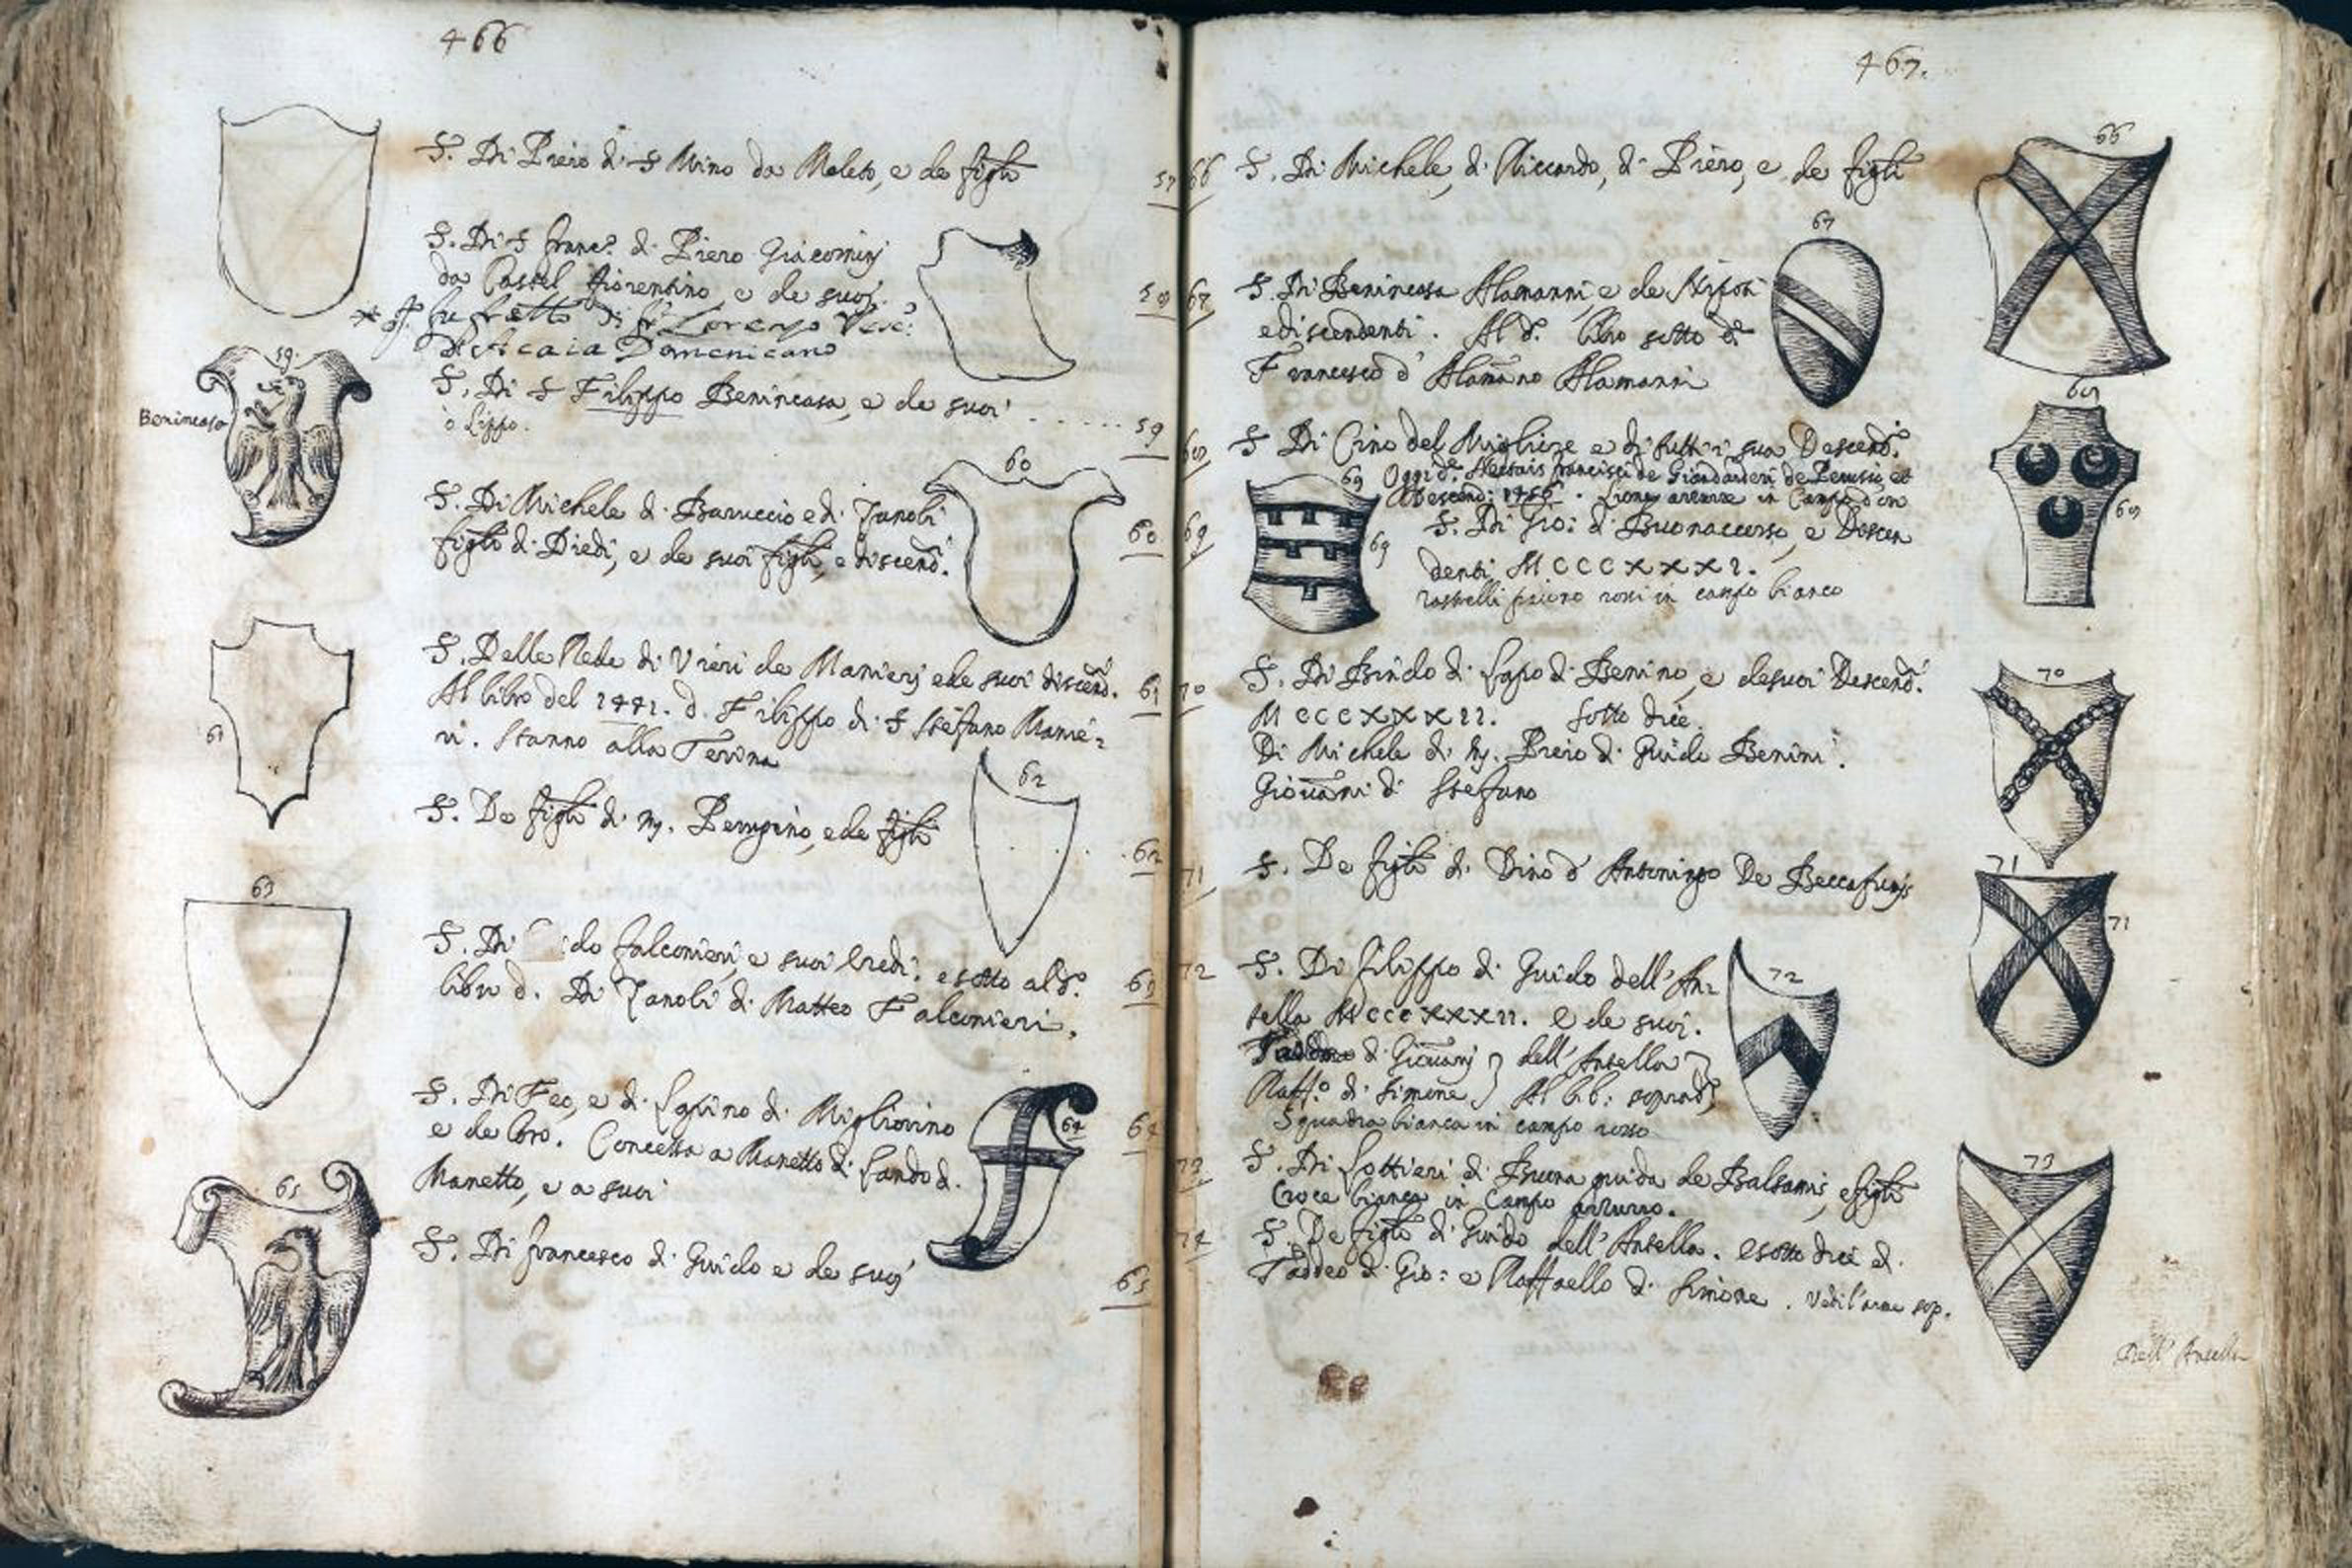 466
S. Di Piero di S Mino da Maleto, e de figli 57
S. Di S franc.º di Piero Giacomini
da Castel fiorentino e de suoi. 58
fu fratello di fr Lorenzo Vesc:
di Acaia Domenicano
59.
Benincasa
S. Di S Filippo Benincasa, e de suoi 59
ò Lippo.
60
S. Di Michele di Baruccio e di Zanobi
figli di Diedi, e de suoi figli, e discend. 60
61
S. Delle Rede di Vieri de Manieri e de suoi discend. 61
Al libro del 1441. d. Filippo di S Stefano Manie=
ri. Stanno alla
62
S. De figli di M. Perugino, e de figli 62
63
S. Di do Falconieri, e suoi heredi. e sotto al d.º 63
libro d. Di Zanobi di Matteo Falconieri.
64
S. Di Feo, e di Lapino di Migliorino 64
e de loro. Concessa a Manetto di Lando d.
Manetto, e a suoi
65
S. Di francesco di Guido e de suoi 65
467.
66 S. Di Michele, di Riccardo, di Piero, e de figli
66
67
67 S. Di Benincasa Alamanni, e de Nipoti
e discendenti. Al d.º libro sotto d.º
Francesco d' Alamano Alamanni
68
68 S Di Cino del Migliore e di tutti i sua Descend.
Oggi d.º Nectaris francisci de de Perusio, et
Descend: 1456. Lione in Campo d'oro
69
69 S. Di Gio: di Buonaccorso, e Descen
denti MCCCXXXI.
69
68
rastrelli rossi in campo bianco
70 S. Di Bindo di Lapo di Benino, e de suoi Descend.
70
MCCCXXXII. sotto dice
Di Michele di M. Piero di Guido Benini.
Giovanni di Stefano
71 S. De figli di Dino d' Antonino De Beccafumi
71
71
72 S. Di filippo di Guido dell'An=
72
tella MCCCXXXII. e de suoi.
Taddeo di Giovanni } dell'Antella }
Raff.º di Simone } Al lib: soprad.
Squadra bianca in campo rosso
73 S. Di Lottieri di Buona guida de Balsamis, e figli
73
Croce bianca in Campo azzurro.
74 S. De figli di Guido dell'Antella. e sotto dice d.
Taddeo di Gio: e Raffaello di Simone. Vedi l'arme sop.
Dell' Antella